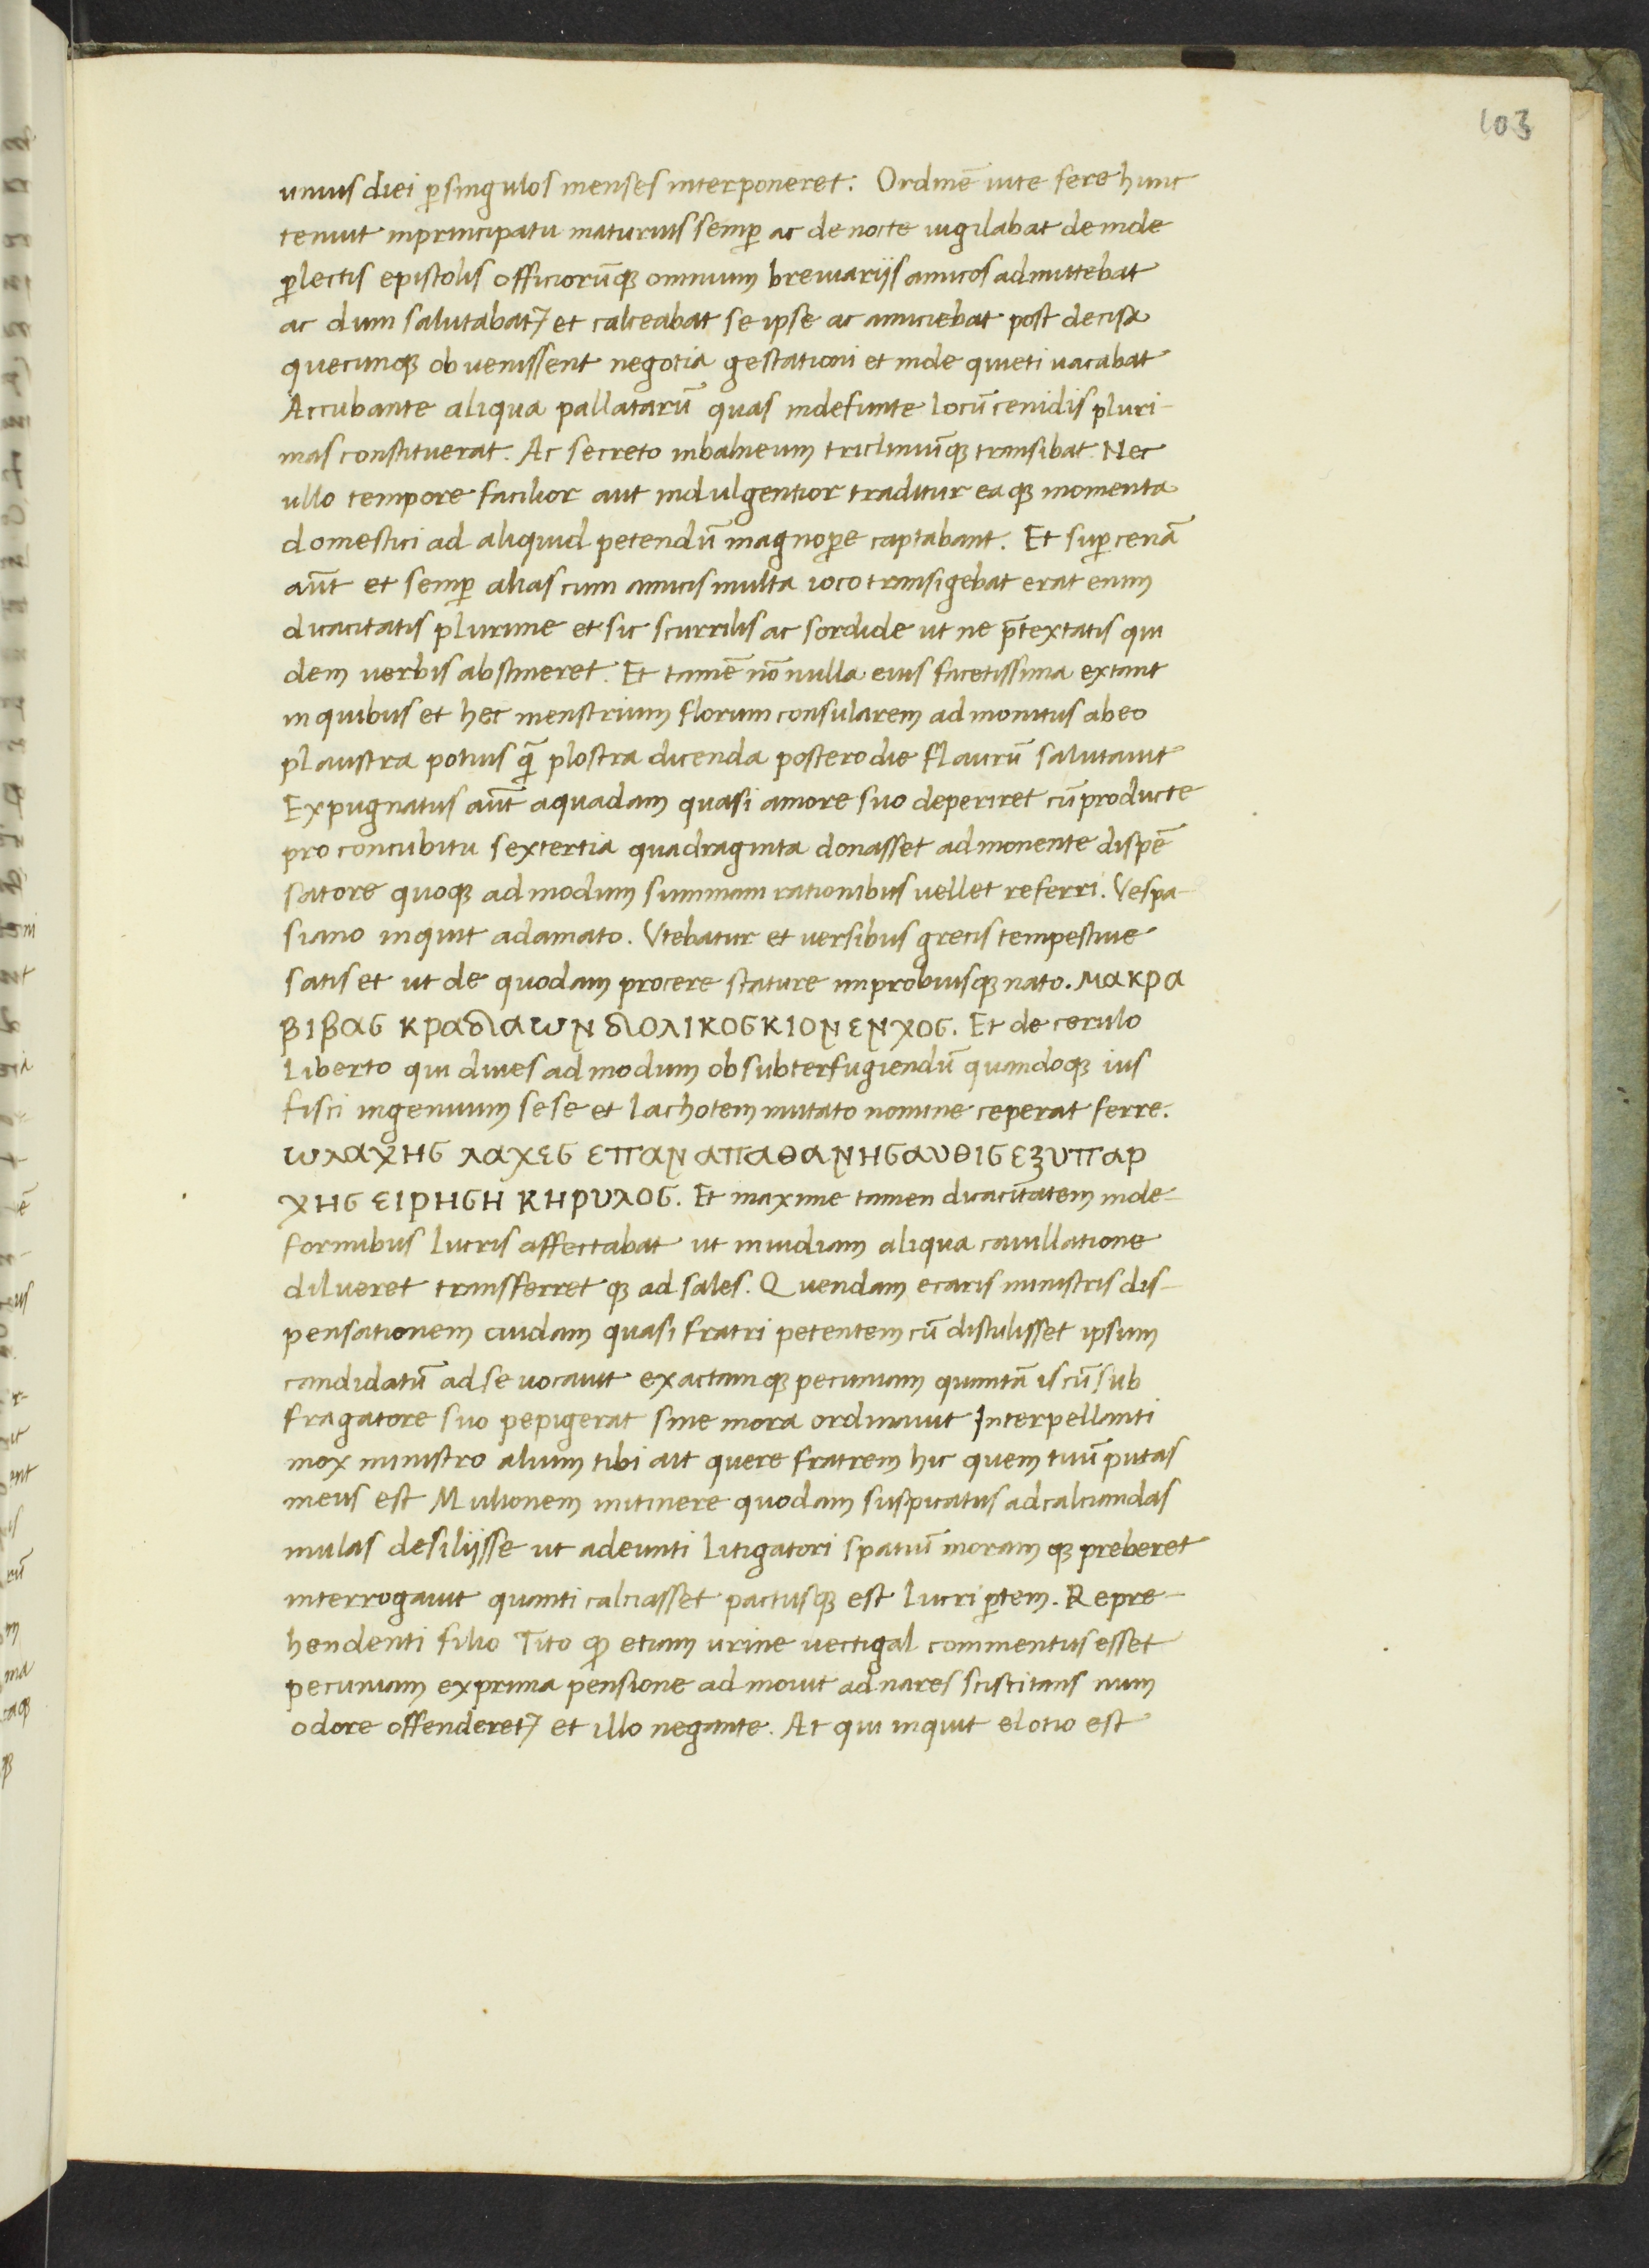 103
unius diei ꝑ singulos menses interponeret. Ordinē uite fere hunc
tenuit in principatu maturius semꝑ ac de nocte uigilabat deinde
ꝑlectis epistolis officiorūqꝫ omnium breuiariis amicos admittebat
ac dum salutabat⁊ et calceabat se ipse ac amiciebat post decisa
quecunqꝫ obuenissent negotia gestationi et inde quieti uacabat
Accubante aliqua pallatarū quas indefuncte locū cenidis pluri-
mas constituerat. Ac secreto in balneum tricliniūqꝫ transibat. Nec
ullo tempore facilior aut indulgentior traditur eaqꝫ momenta
domestici ad aliquid petendū magnoꝑe captabant. Et suꝑ cenā
aūt et semꝑ alias cum amicis multa ioco transigebat erat enim
dicacitatis plurime et sic scurrilis ac sordide ut ne p̄textatis qui
dem uerbis abstineret. Et tamē nō nulla eius facetissima extant
in quibus et hec menstrium florum consularem admonitus ab eo
plaustra potius q̄ plostra dicenda postero die flaurū salutauit
Expugnatus aūt aquadam quasi amore suo deperiret cū producte
pro concubitu sextertia quadraginta donasset admonente dispē
satore quoqꝫ ad modum summam rationibus uellet referri. Vespa-
siano inquit adamato. Vtebatur et uersibus grecis tempestiue
satis et ut de quodam procere stature improbiusqꝫ nato. ΜΑΚΡΑ
ΒΙΒΑϹ ΚΡΑΔΙΑΩΝ ΔΙΟΛΙΚΟϹΚΙΟΝ ΕΝΧΟϹ. Et de cerulo
Liberto qui diues ad modum ob subterfugiendū quandoqꝫ ius
fisci ingenuum sese et lachotem mutato nomine ceperat ferre.
ΩΛΑΧΗϹ ΛΑΧΕϹ ΕΠΑΝ ΑΠΑΘΑΝΗϹΑΥΘΙϹ ΕΞΥΠΑΡ
ΧΗϹ ΕΙΡΗϹΗ ΚΗΡΥΛΟϹ. Et maxime tamen dicacitatem inde-
formibus lucris affectabat ut inuidiam aliqua cauillatione
dilueret transferret qꝫ ad sales. Quendam ecaris ministris dis-
pensationem cuidam quasi fratri petentem cū distulisset ipsum
candidatū ad se uocauit exactamqꝫ pecuniam quantā is cū sub
fragatore suo pepigerat sine mora ordinauit Interpellanti
mox ministro alium tibi ait quere fratrem hic quem tuū putas
meus est Mulionem initinere quodam suspicatus ad calciandas
mulas desiliisse ut adeunti litigatori spatiū moram qꝫ preberet
interrogauit quanti calciasset pactusqꝫ est lucri ꝑtem. Repre-
hendenti filio Tito ꝙ etiam urine uectigal commentus esset
pecuniam ex prima pensione admouit ad nares sciscitans num
odore offenderet⁊ et illo negante. At qui inquit elotio est